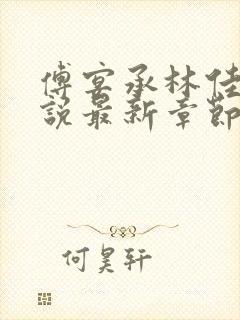 傅宴承林佳
說最新章節
何昊轩